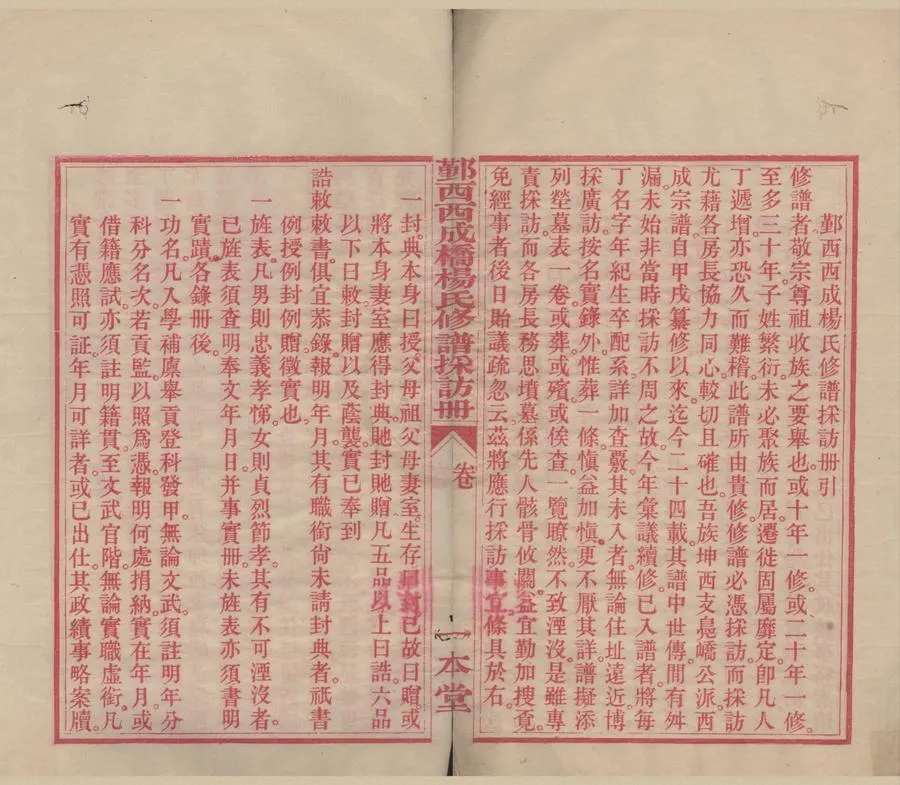 鄞西西成楊氏修譜採訪冊引
修譜者敬宗尊祖收族之要舉也或十年一修或二十年一修
至多三十年子姓繁衍未必聚族而居遷徙固屬靡定卽凡人
丁遞增亦恐久而難稽此譜所由貴修修譜必憑採訪而採訪
尤藉各房長協力同心較切且確也吾族坤西支島嶠公派西
成宗譜自甲戌纂修以來迄今二十四載其譜中世傳間有舛
漏未始非當時採訪不周之故今年彙議續修已入譜者將每
丁名字年紀生卒配系詳加查覈其未入者無論住址遠近博
採廣訪按名實錄外惟葬一條愼益加愼更不厭其詳譜擬添
列塋墓表一卷或葬或殯或俟查一覽瞭然不致湮沒是雖專
責採訪而各房長務思墳墓係先人骸骨攸關益宜勤加搜覓
免經事者後日貽議疏忽云茲將應行採訪事宜條具於右
鄞西西成橋楊氏修譜採訪冊
卷
一
一本堂
一封典本身曰授父母祖父母妻室生存曰封已故曰贈或
將本身妻室應得封典貤封貤贈凡五品以上曰誥六品
以下曰敕封贈以及蔭襲實已奉到
誥敕敕書俱宜恭錄報明年月其有職銜尙未請封典者祇書
例授例封例贈徵實也
一旌表凡男則忠義孝悌女則貞烈節孝其有不可湮沒者
已旌表須查明奉文年月日并事實冊未旌表亦須書明
實蹟各錄冊後
一功名凡入學補廩舉貢登科發甲無論文武須註明年分
科分名次若貢監以照爲憑報明何處捐納實在年月或
借籍應試亦須註明籍貫至文武官階無論實職虛銜凡
實有憑照可証年月可詳者或已出仕其政績事略案牘